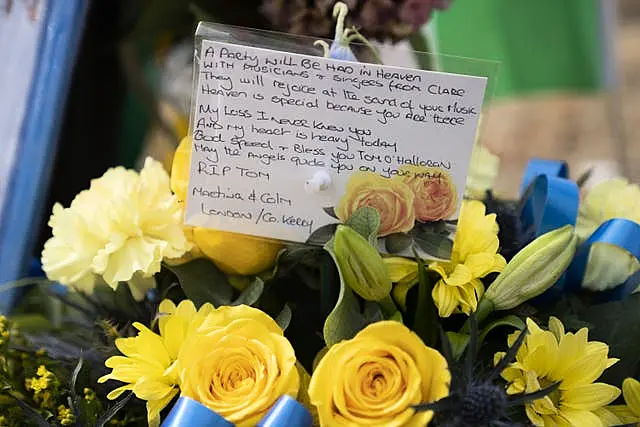 A Party Will Be Had in Heaven
With Musicians + Singers from Clare
They will rejoice at the sound of your Music
Heaven is special because you are there
My Loss I Never Knew you
And my heart is heavy today
God Speed + Bless you Tom O'Halloran
May the Angels guide you on your way
RIP Tom
Martina & Colm
London/Co. Kerry